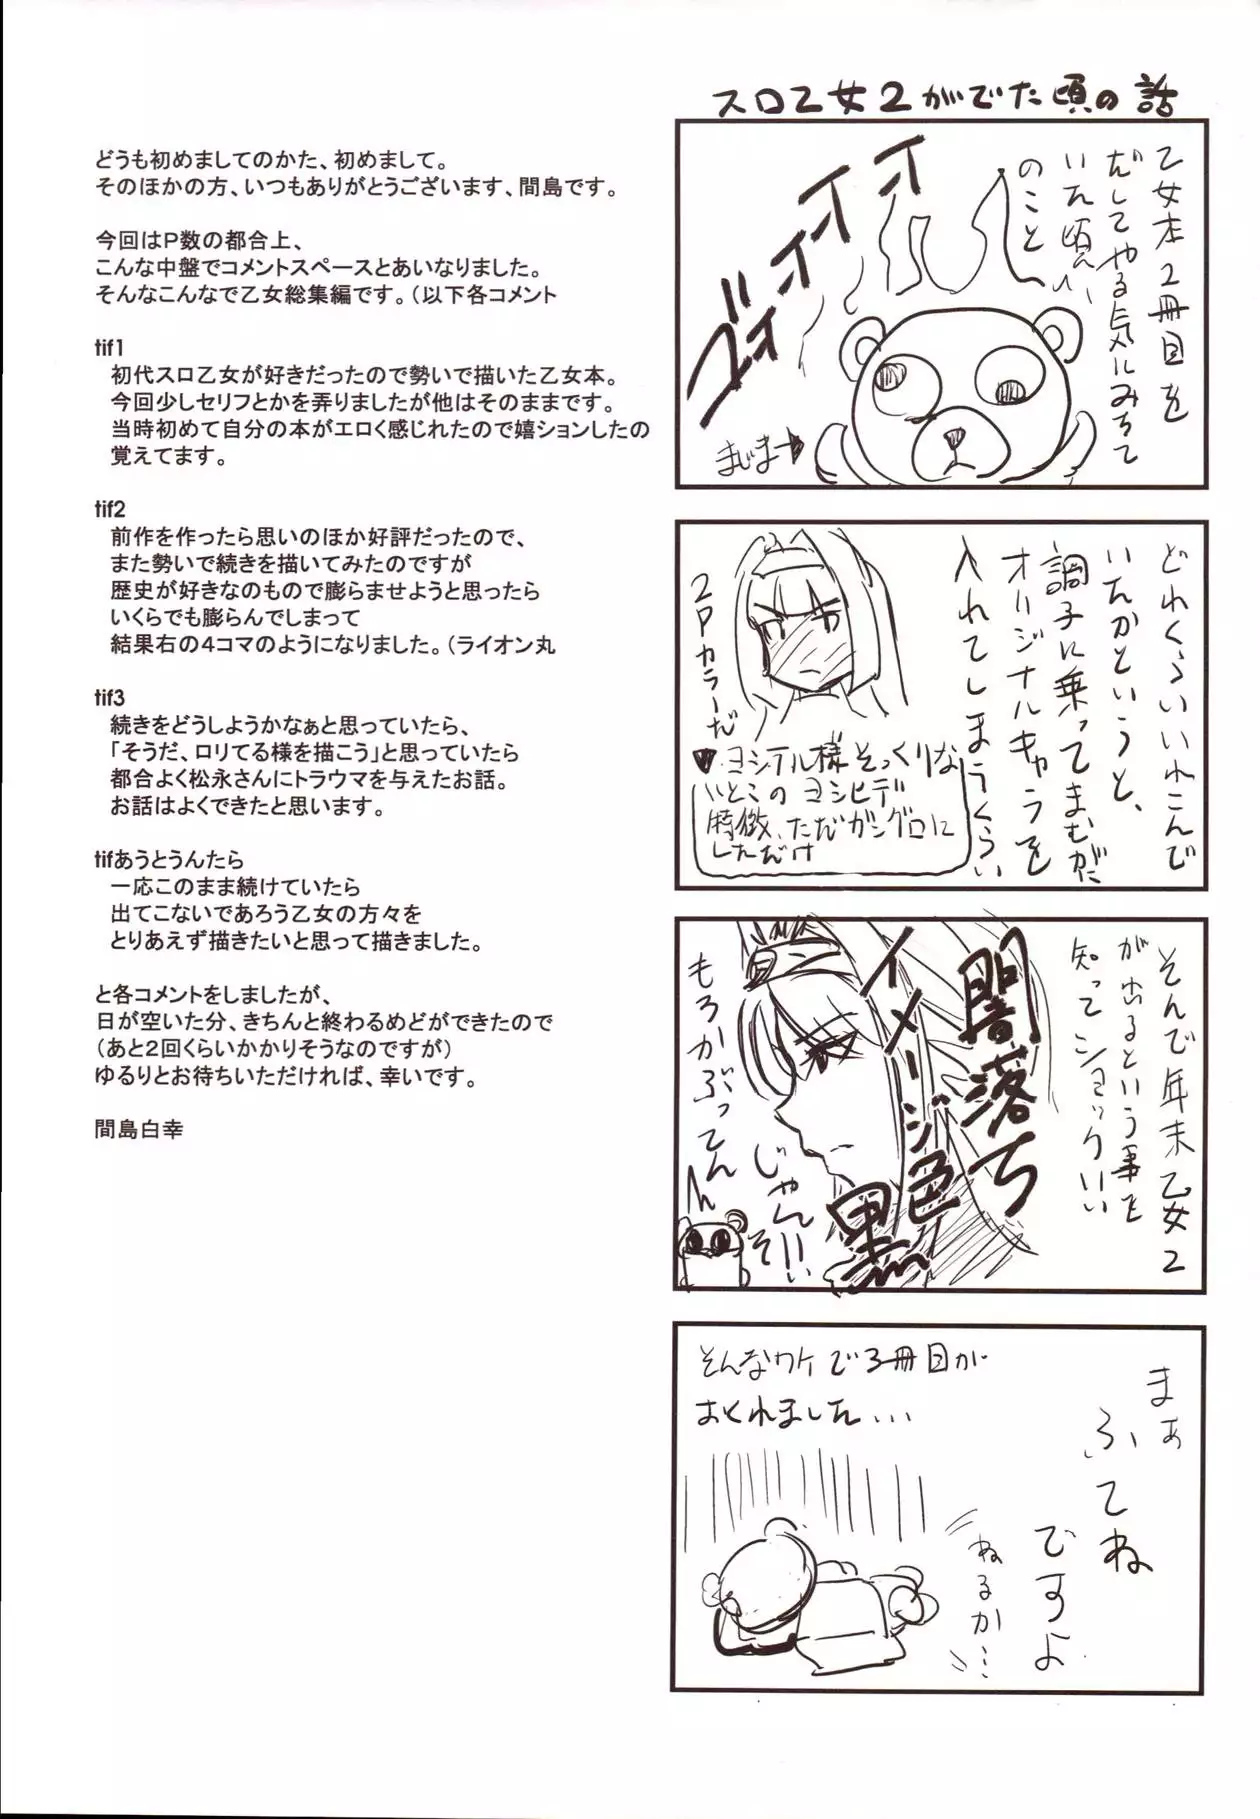 どうも初めましてのかた、初めまして。
そのほかの方、いつもありがとうございます、間島です。
今回はP数の都合上、
こんな中盤でコメントスペースとあいなりました。
そんなこんなで乙女総集編です。（以下各コメント
tif1
初代スロ乙女が好きだったので勢いで描いた乙女本。
今回少しセリフとかを弄りましたが他はそのままです。
当時初めて自分の本がエロく感じれたので嬉ションしたの
覚えてます。
tif2
前作を作ったら思いのほか好評だったので、
また勢いで続きを描いてみたのですが
歴史が好きなのもので膨らませようと思ったら
いくらでも膨らんでしまって
結果右の4コマのようになりました。（ライオン丸
tif3
続きをどうしようかなぁと思っていたら、
「そうだ、ロリてる様を描こう」と思っていたら
都合よく松永さんにトラウマを与えたお話。
お話はよくできたと思います。
tifあうとうんたら
一応このまま続けていたら
出てこないであろう乙女の方々を
とりあえず描きたいと思って描きました。
と各コメントをしましたが、
日が空いた分、きちんと終わるめどができたので
（あと2回くらいかかりそうなのですが）
ゆるりとお待ちいただければ、幸いです。
間島白幸
スロ乙女2がでた頃の話
乙女本2冊目を
だしてやる気にみちて
いた頃
のこと
ゴォォォォ
まじま→
どれくらいいれこんで
いたかというと、
調子に乗ってまむがに
オリジナルキャラを
入れてしまうくらい
2Pカラーだ
♥ヨシテル様そっくりな
いとこのヨシヒデ
特徴、ただガングロに
しただけ
そんで年末乙女2
が出るという事を
知ってショックいい
闇落ち
イメージ色
黒
もろかぶってんじゃん!!
そんなワケで3冊目が
おくれました...
まぁ
ふてね
ですよ
ねるか...